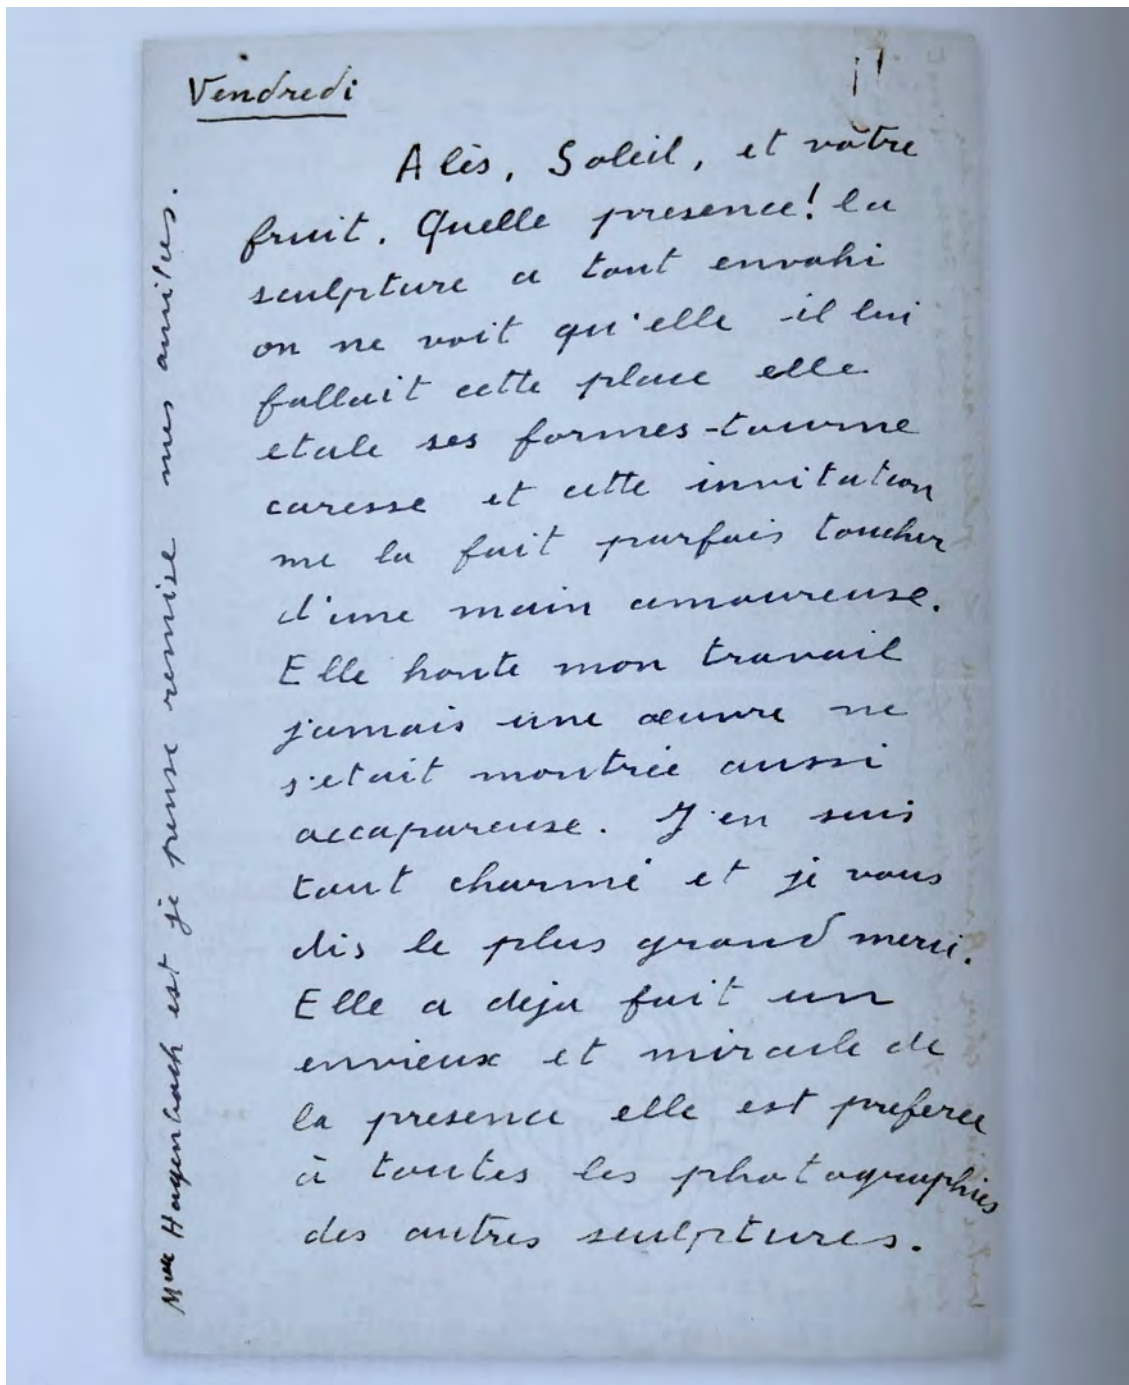 Vendredi
Alès, Soleil, et vôtre
fruit. Quelle presence! la
sculpture a tout envahi
on ne voit qu'elle - il lui
fallait cette place elle
etale ses formes - tourne
caresse et cette invitation
me la fait parfois toucher
d'une main amoureuse.
Elle hante mon travail
jamais une œuvre ne
s'etait montrée aussi
accapareuse. J'en suis
tout charmé et je vous
dis le plus grand merci.
Elle a deja fait un
envieux et miracle de
la presence elle est preferee
à toutes les photographies
des autres sculptures.
Mme Hagenbach est je pense remise mes amitiés.